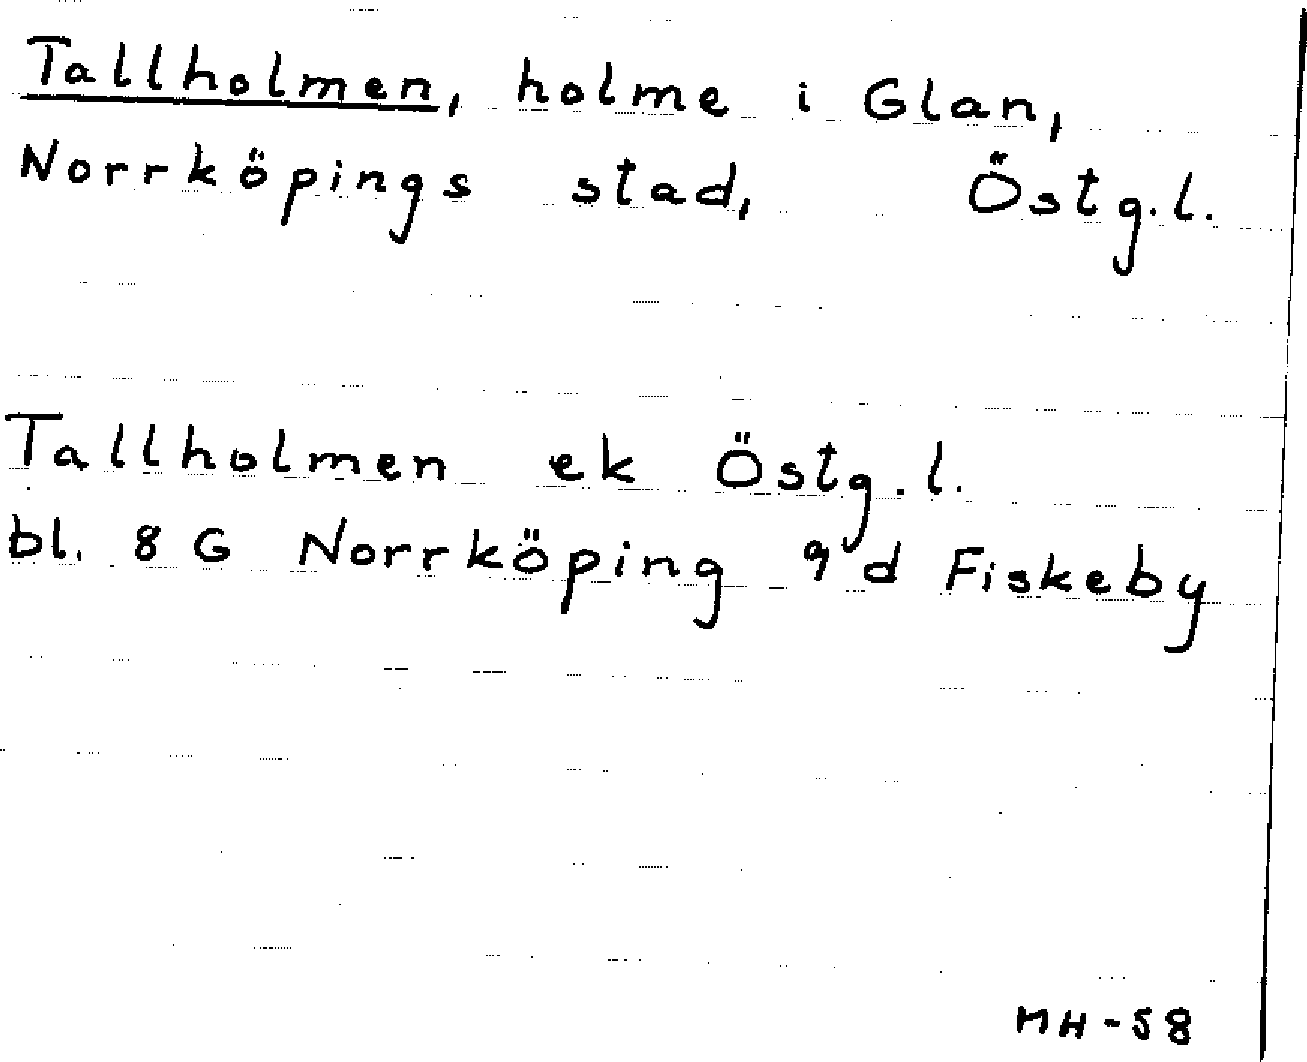 Tallholmen, holme i Glan,
Norrköpings stad, Östg.l.
Tallholmen ek Östg.l.
bl. 8 G Norrköping 9 d Fiskeby
MH-58